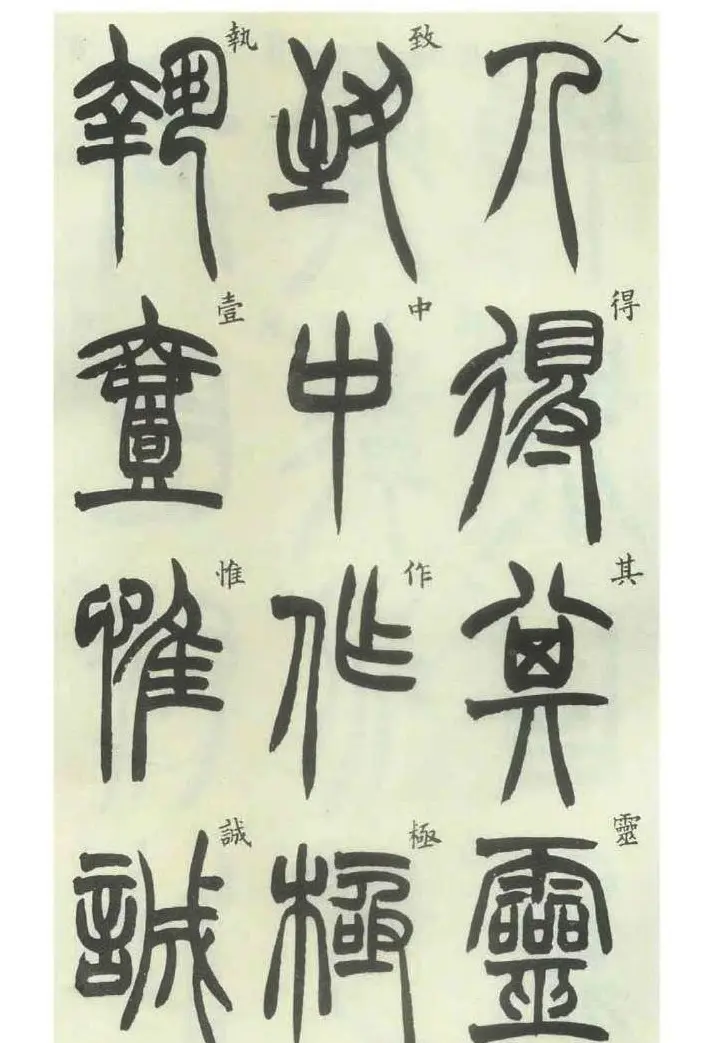 人得其靈
致中作極
執壹惟誠